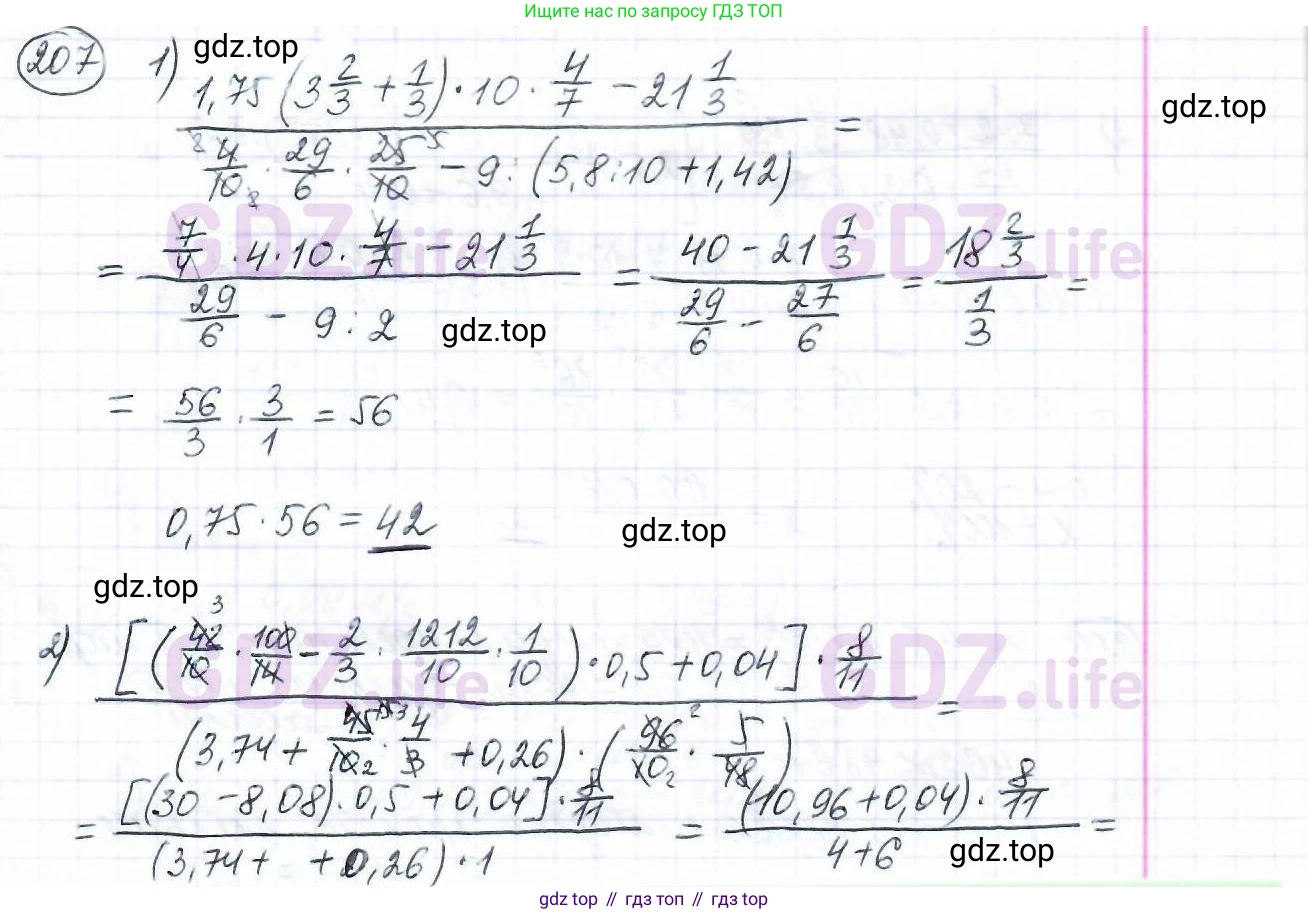 Ищите нас по запросу ГДЗ ТОП
207 1) gdz.top
(1,75 (3 2/3 + 1/3) · 10 · 4/7 − 21 1/3) / (4/10 · 29/6 · 25/10 − 9 : (5,8 : 10 + 1,42)) =
gdz.top
GDZ.life GDZ.life
= (7/4 · 4 · 10 · 4/7 − 21 1/3) / (29/6 − 9 : 2) = (40 − 21 1/3) / (29/6 − 27/6) = (18 2/3) / (1/3) =
gdz.top
= 56/3 · 3/1 = 56
0,75 · 56 = 42
gdz.top
gdz.top
2) ([(42/10 · 100/14 − 2/3 · 1212/10 · 1/10) · 0,5 + 0,04] · 8/11) / ((3,74 + 45/10 · 4/3 + 0,26) · (96/10 · 5/48)) =
GDZ.life GDZ.life
= ([(30 − 8,08) · 0,5 + 0,04] · 8/11) / ((3,74 + + 0,26) · 1) = ((10,96 + 0,04) · 8/11) / (4 + 6) =
gdz.top
gdz.top // гдз топ // gdz top // гдз топ